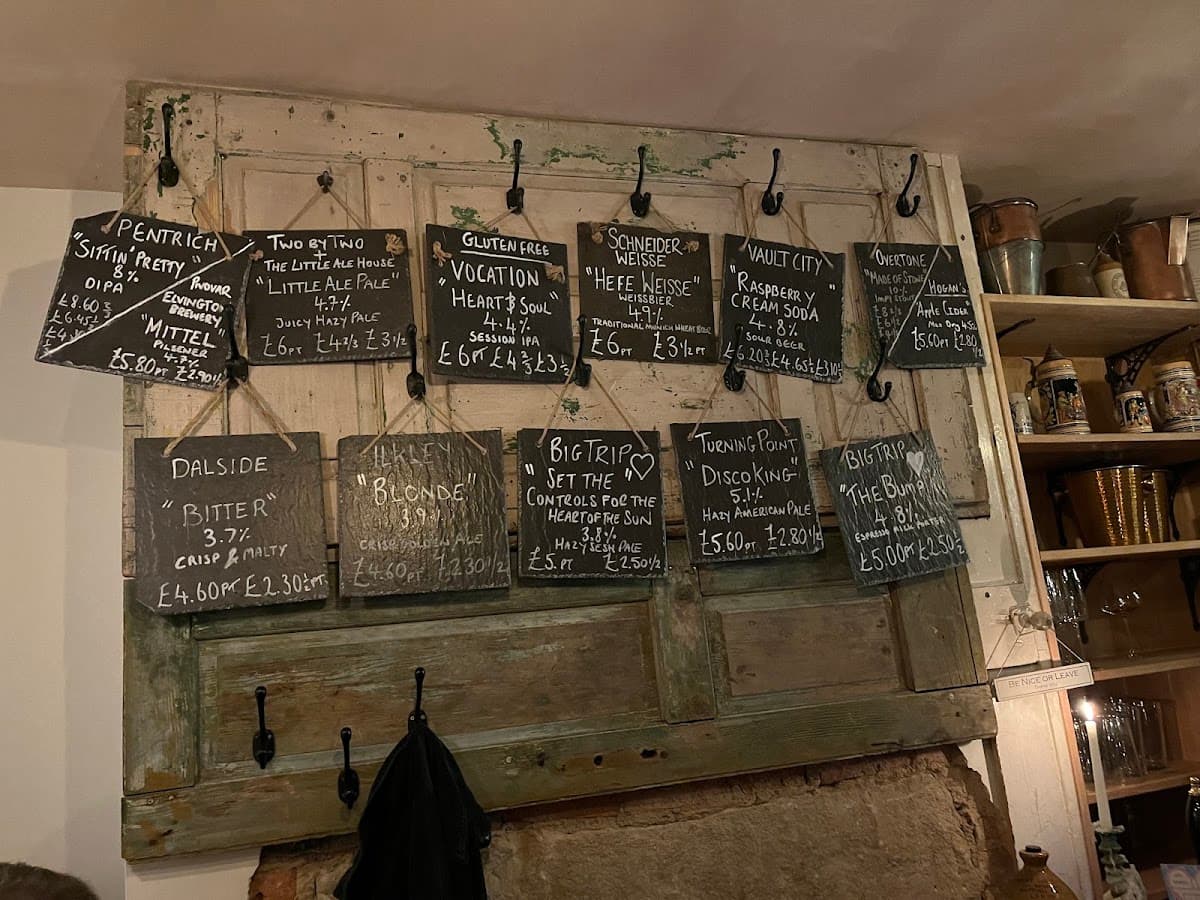 PENTRICH
"SITTIN' PRETTY"
8%
DIPA
£8.60 ⅔
£6.45 ½
PIVOVAR
ELVINGTON
BREWERY
"MITTEL"
PILSENER
£5.80PT £2.90½
TWO BY TWO
+
THE LITTLE ALE HOUSE
"LITTLE ALE PALE"
4.7%
JUICY HAZY PALE
£6PT £4⅔ £3½
GLUTEN FREE
VOCATION
"HEART & SOUL"
4.4%
SESSION IPA
£6PT £4⅔ £3½
SCHNEIDER-
WEISSE
"HEFE WEISSE"
WEISSBIER
4.9%
TRADITIONAL MUNICH WHEAT BEER
£6PT £3½PT
VAULT CITY
"RASPBERRY
CREAM SODA
4.8%
SOUR BEER
£6.20⅔ £4.65½ £3.10⅓
OVERTONE
"MADE OF STONE"
10%
IMP STOUT
HOGAN'S
APPLE CIDER
MED DRY 4.5%
£5.60PT £2.80½
DALSIDE
"BITTER"
3.7%
CRISP & MALTY
£4.60PT £2.30½PT
ILKLEY
"BLONDE"
3.9%
CRISP GOLDEN ALE
£4.60PT £2.30½
BIG TRIP ♡
"SET THE
CONTROLS FOR THE
HEART OF THE SUN
3.8%
HAZY SESH PALE
£5.PT £2.50½
TURNING POINT
"DISCO KING"
5.1%
HAZY AMERICAN PALE
£5.60PT £2.80½
BIG TRIP ♥
"THE BUMP
4.8%
ESPRESSO MILK PORTER
£5.00PT £2.50½
BE NICE OR LEAVE